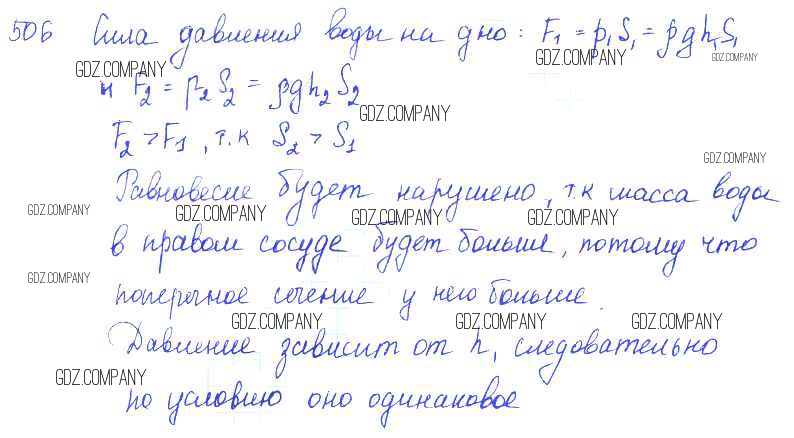 506 Сила давления воды на дно: F₁ = p₁S₁ = ρgh₁S₁
GDZ.COMPANY GDZ.COMPANY GDZ.COMPANY
и F₂ = p₂S₂ = ρgh₂S₂
GDZ.COMPANY
F₂ > F₁, т.к S₂ > S₁
GDZ.COMPANY
Равновесие будет нарушено, т.к масса воды
GDZ.COMPANY GDZ.COMPANY GDZ.COMPANY GDZ.COMPANY
в правом сосуде будет больше, потому что
GDZ.COMPANY
поперечное сечение у него больше.
GDZ.COMPANY GDZ.COMPANY GDZ.COMPANY
Давление зависит от h, следовательно
GDZ.COMPANY
по условию оно одинаковое